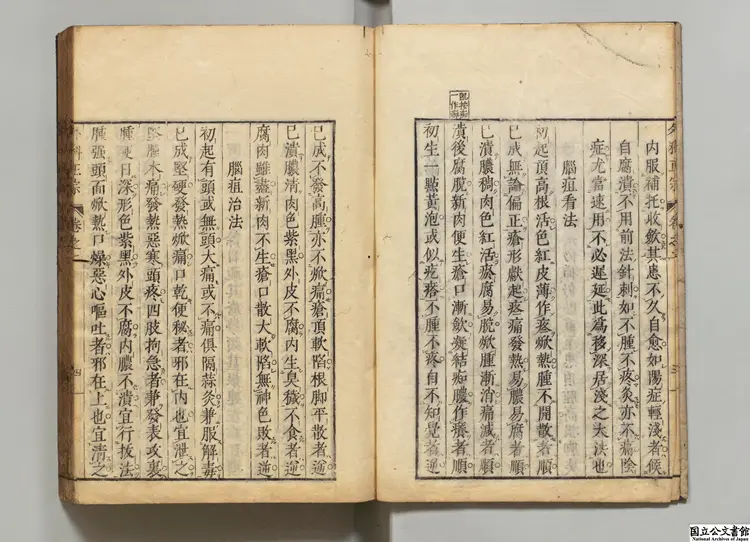 內服補托收斂其患不久自愈如陽症輕淺者候
自腐潰不用前法針刺如不腫不疼灸亦不痛陰
症尤當速用不必遲延此為移深居淺之大法也
腦疽看法
初起頂高根活色紅皮薄作疼焮熱腫不開散者順
已成無論偏正瘡形獻起疼痛發熱易膿易腐者順
已潰膿稠肉色紅活瘀腐易脫焮腫漸消痛減者順
潰後腐脫新肉便生瘡口漸歛凝結痂膿作癢者順
初生一點黃泡或似疙瘩不腫不疼自不知覺者逆
一作
已成不發高腫亦不焮痛瘡頂軟陷根脚平散者逆
已潰膿清肉色紫黑外皮不腐內生臭穢不食者逆
腐肉雖盡新肉不生瘡口散大軟陷無神色敗者逆
腦疽治法
初起有頭或無頭大痛或不痛俱隔蒜灸兼服解毒
已成堅硬發熱焮痛口乾便秘者邪在內也宜泄之
堅腫木痛發熱惡寒頭疼四肢拘急者兼發表攻裏
腫硬日深形色紫黑外皮不腐內膿不潰宜行拔法
腫强頭面焮熱口燥惡心嘔吐者邪在上也宜清之
外科正宗 卷之二 四
国立公文書館
National Archives of Japan